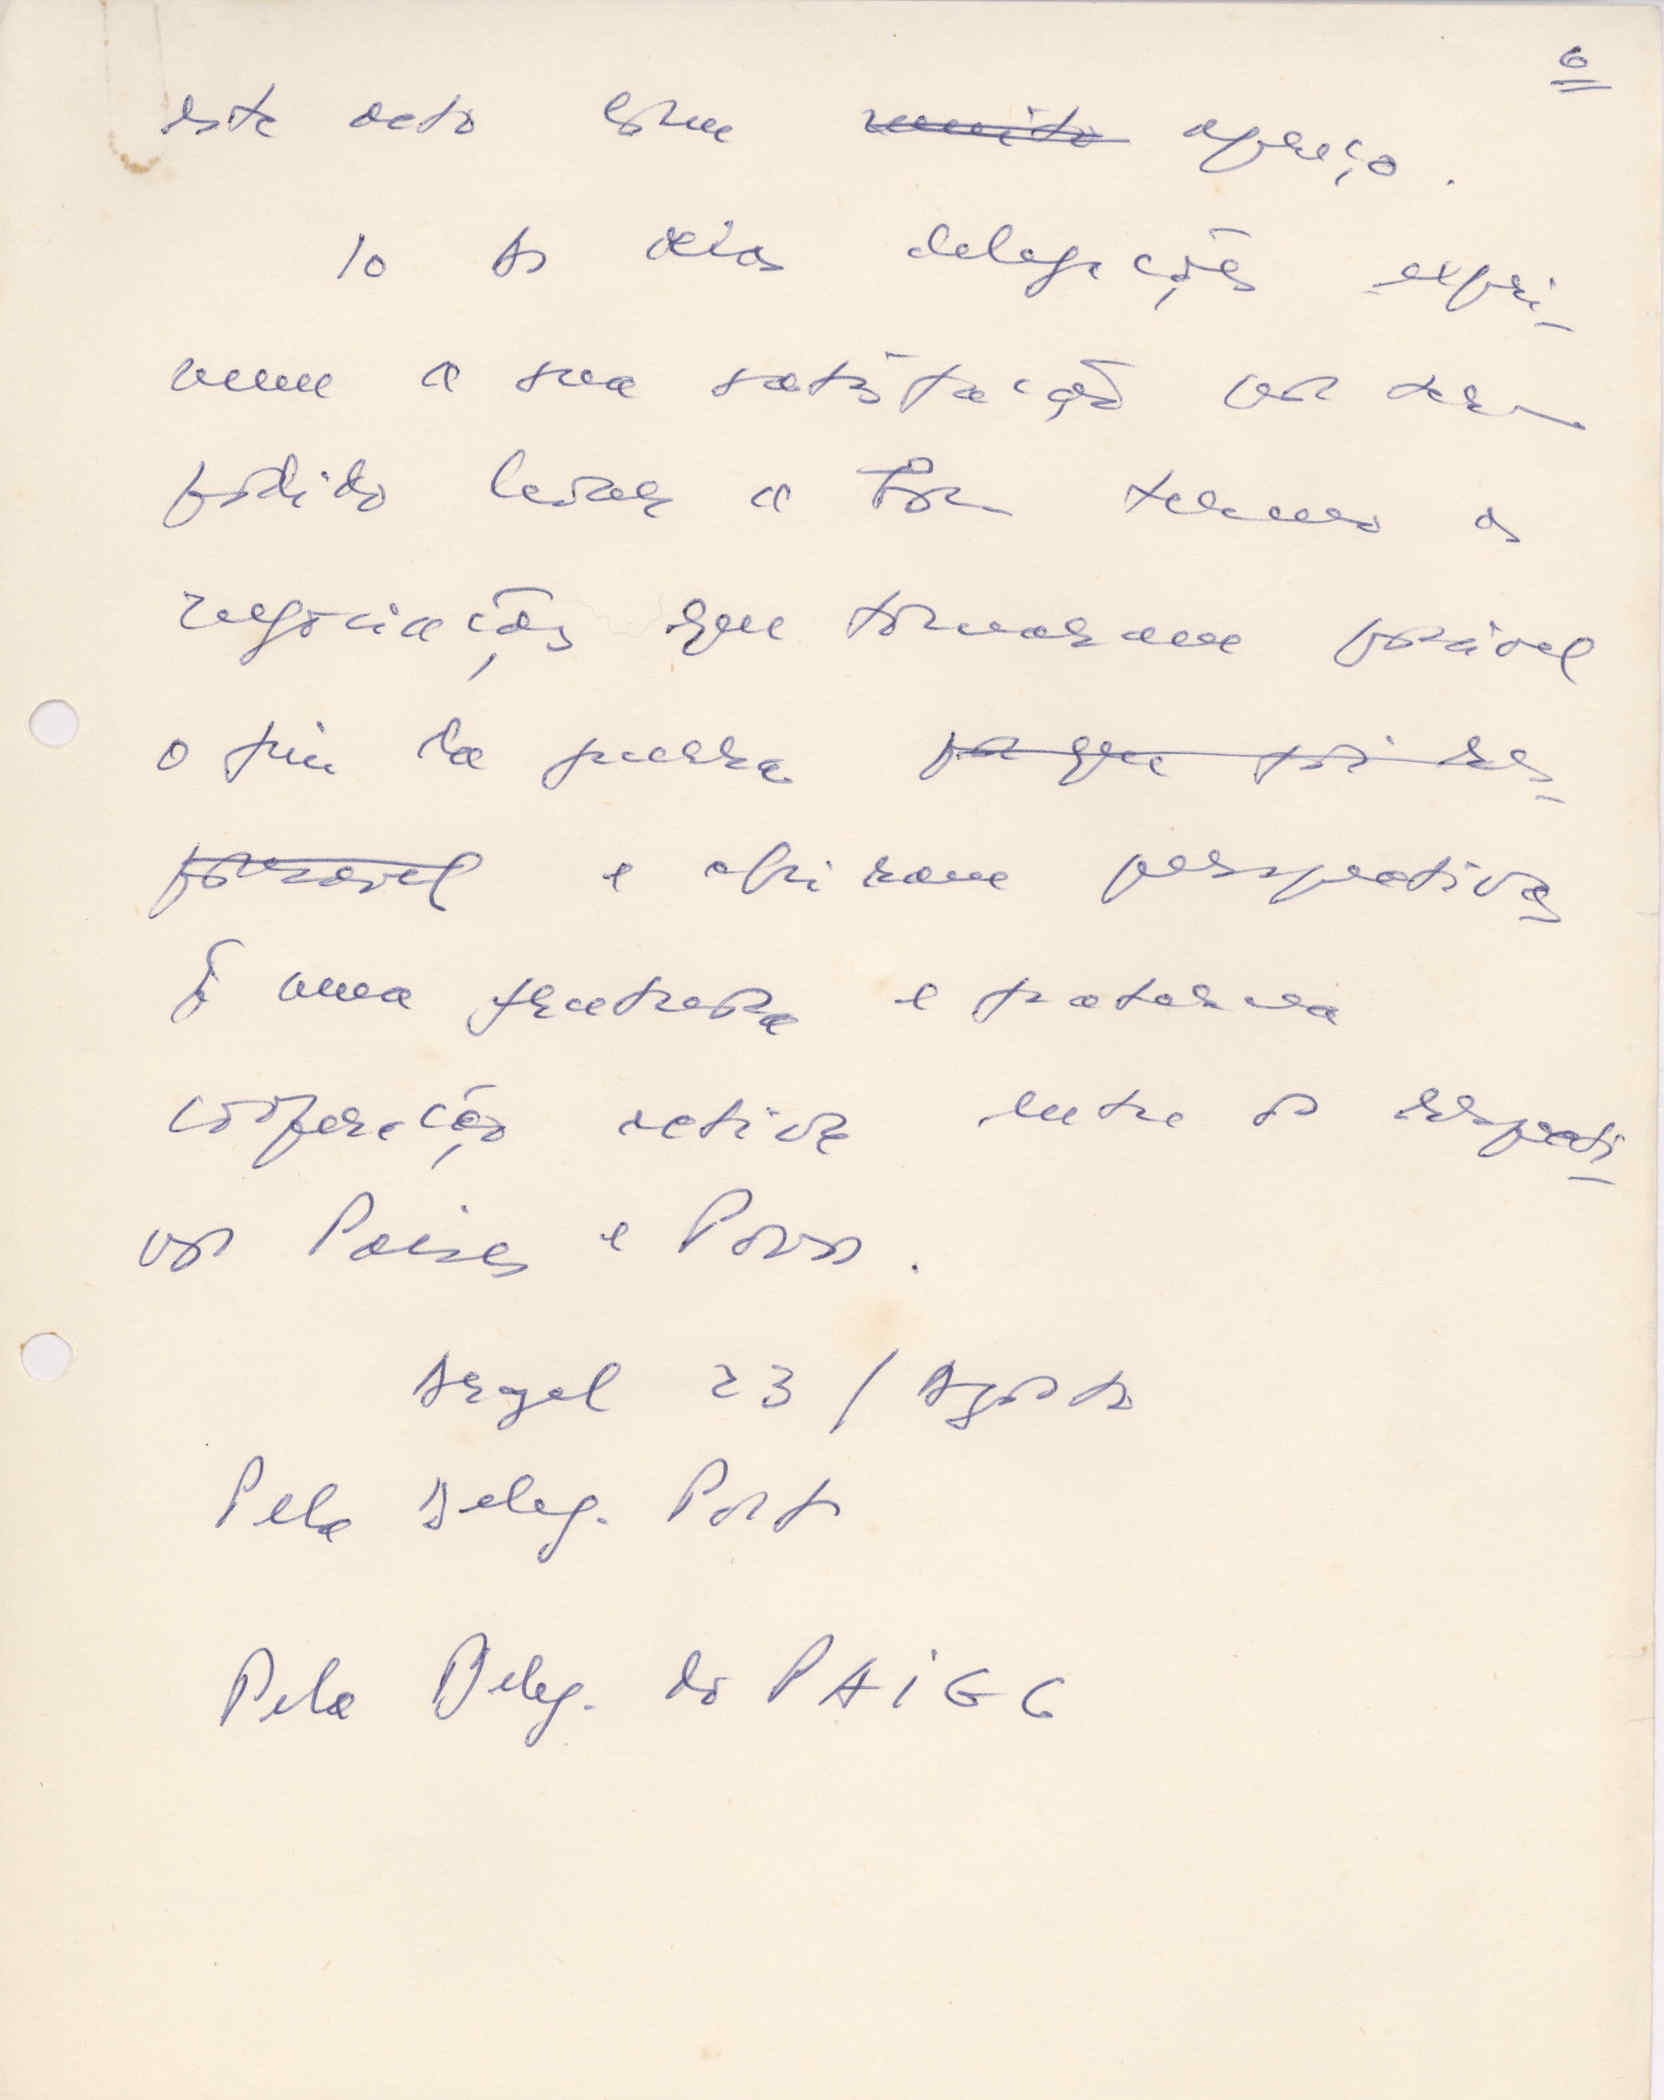 6
este acto com muito apreço.
10 As duas delegações expri-
mem a sua satisfação por ter
podido levar a bom termo as
negociações que tornaram possível
o fim da guerra por que foi res-
ponsável e abriram perspectivas
uma frutuosa e fraterna
cooperação activa entre os respecti-
vos Paises e Povos.
Argel 23 / Agosto
Pela Deleg. Port
Pela Deleg. do PAIGC